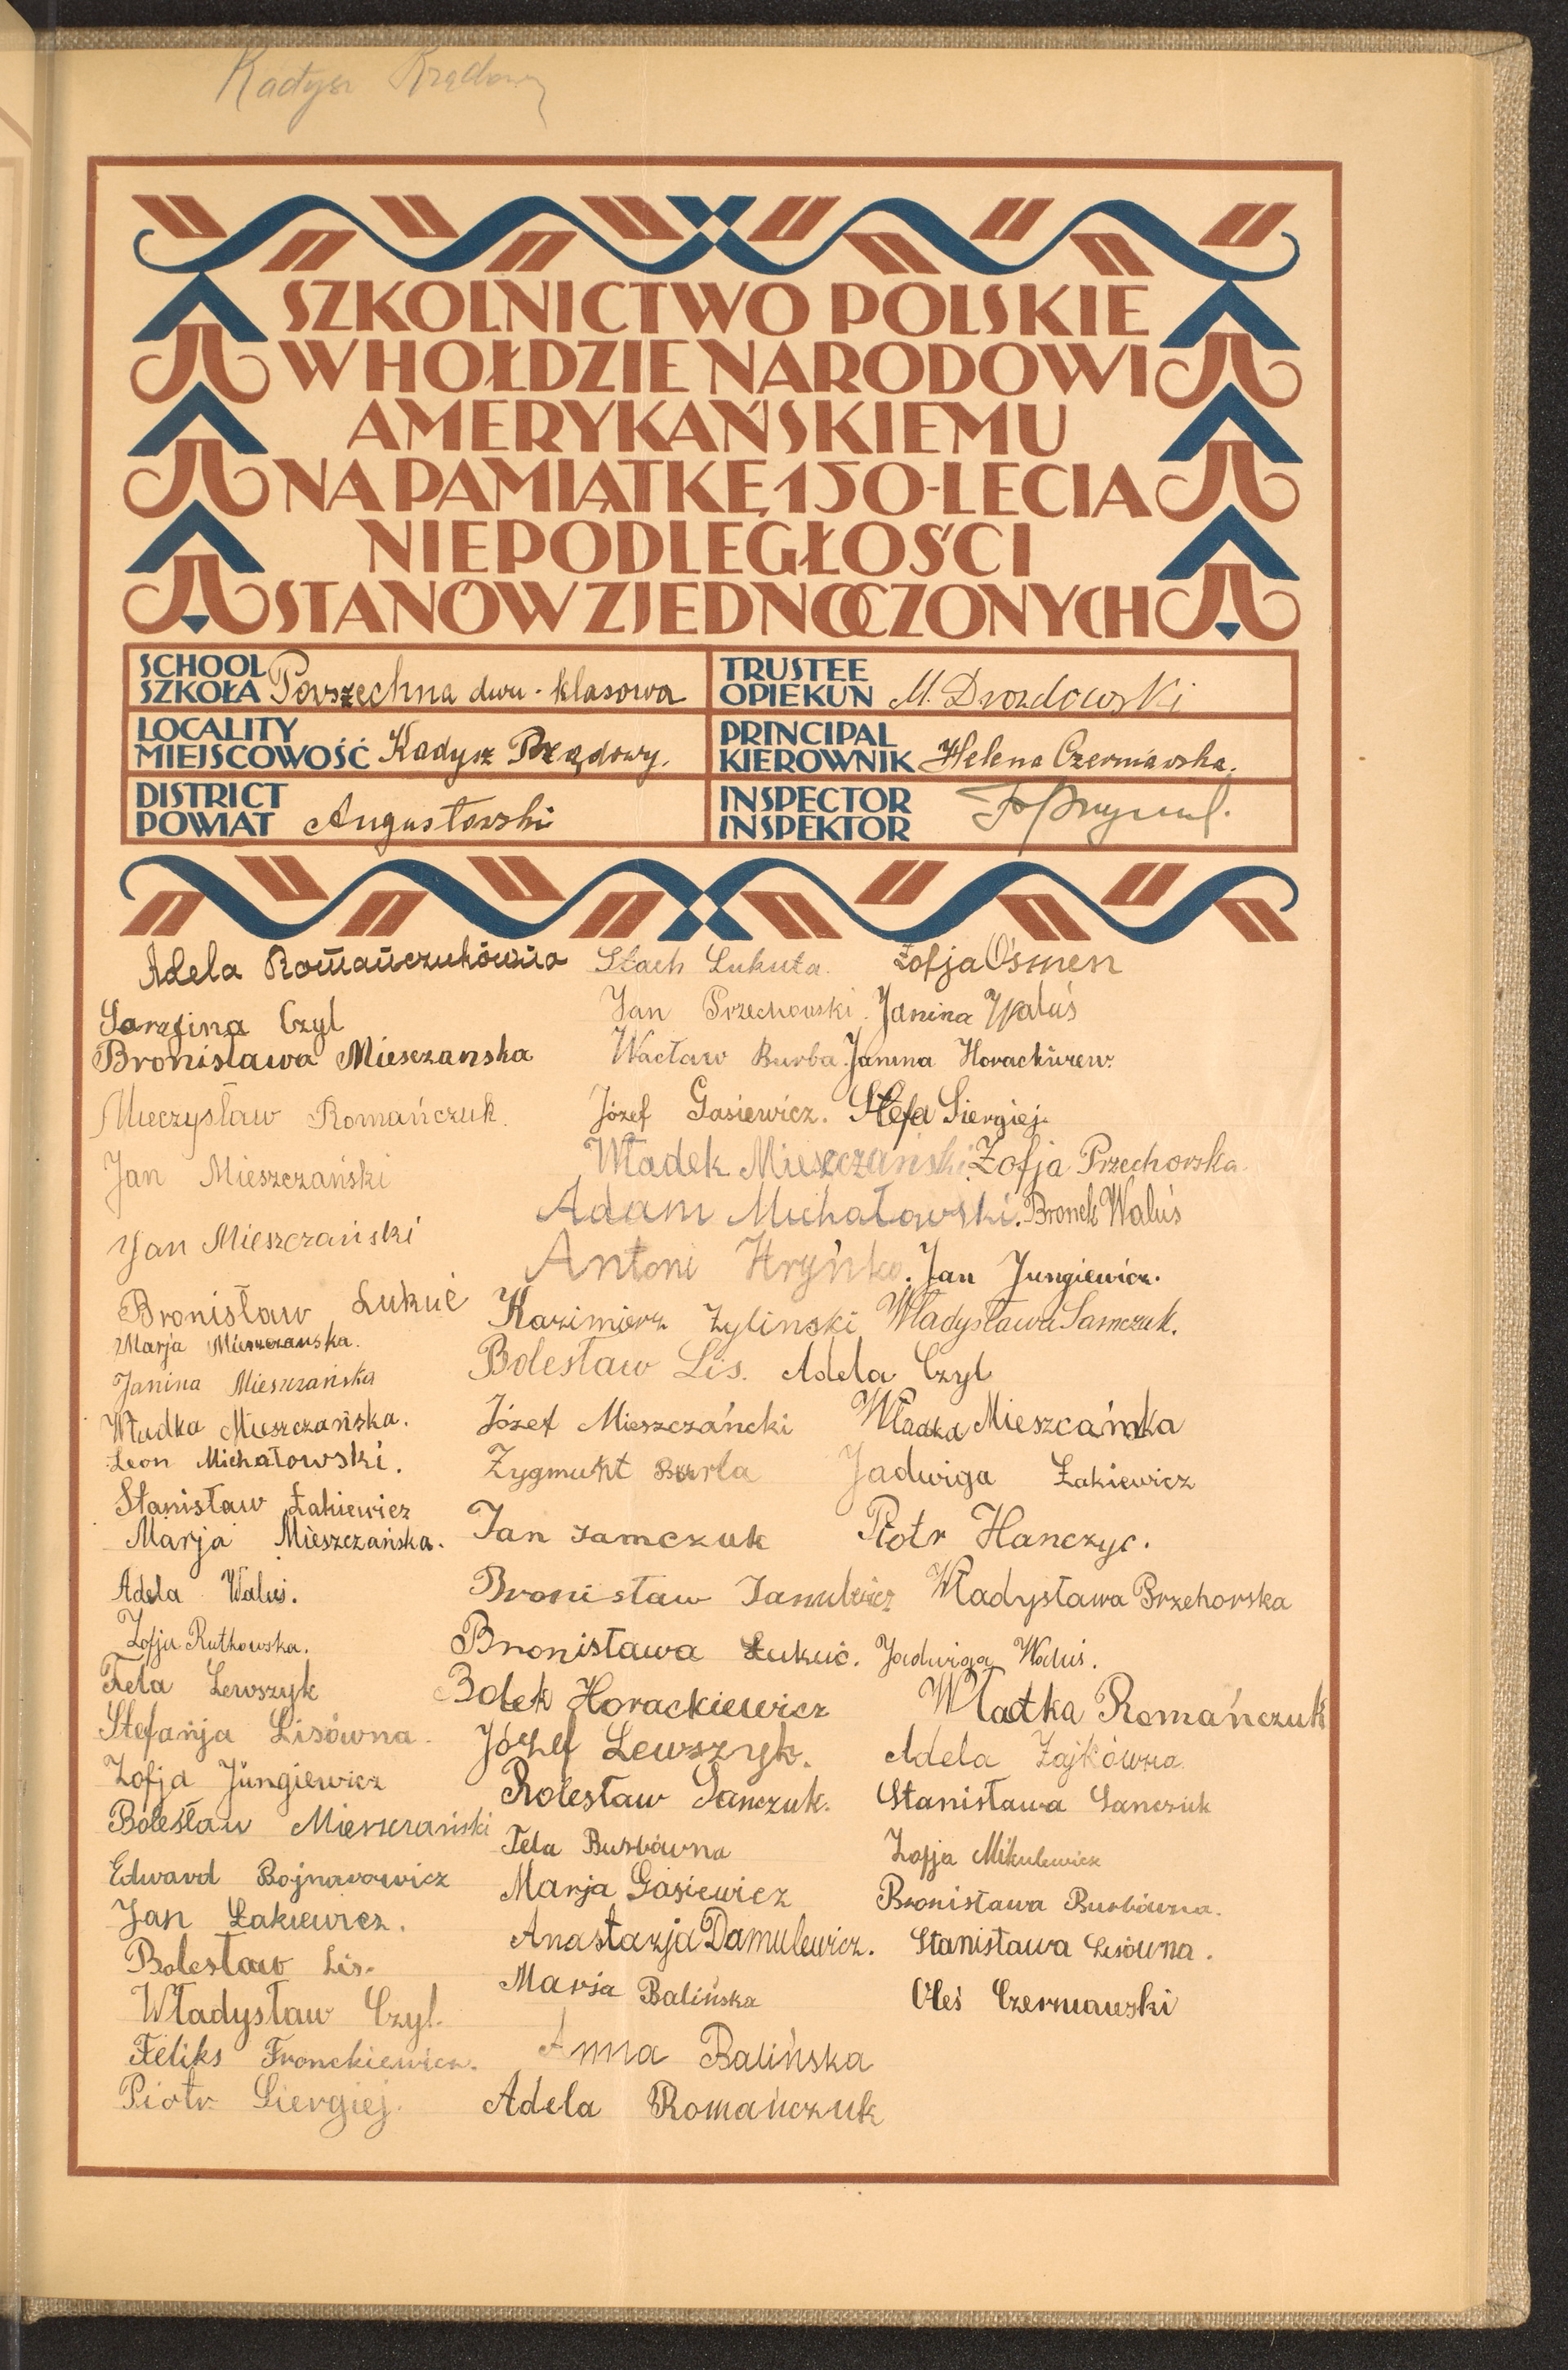 Kadysz Rządowy
SZKOLNICTWO POLSKIE
W HOŁDZIE NARODOWI
AMERYKAŃSKIEMU
NA PAMIĄTKĘ 150-LECIA
NIEPODLEGŁOŚCI
STANÓW ZJEDNOCZONYCH
SCHOOL
SZKOŁA Powszechna dwu-klasowa
TRUSTEE
OPIEKUN M. Drozdowski
LOCALITY
MIEJSCOWOŚĆ Kadysz Rządowy.
PRINCIPAL
KIEROWNIK Helena Czerniawska.
DISTRICT
POWIAT Augustowski
INSPECTOR
INSPEKTOR
Adela Romańczukówna
Sarafina Czyl
Bronisława Miesczanska
Mieczysław Romańczuk.
Jan Mieszczański
Jan Mieszczański
Bronisław Łukuć
Marja Mieszczańska.
Janina Mieszczańska
Władka Mieszczańska.
Leon Michałowski.
Stanisław Łakiewicz
Marja Mieszczańska.
Adela Waluś.
Zofja Rutkowska.
Fela Lewszyk
Stefanja Lisówna.
Zofja Jungiewicz
Bolesław Mieszczański
Edward Bojnarowicz
Jan Łakiewicz.
Bolesław Lis.
Władysław Czyl.
Feliks Fronckiewicz.
Piotr Siergiej.
Stach Łukuta.
Jan Przechowski.
Wacław Burba.
Józef Gasiewicz.
Władek Mieszczański.
Adam Michałowski.
Antoni Hryńko.
Kazimierz Żylinski
Bolesław Lis.
Józef Mieszczańcki
Zygmunt Burła
Jan Samczuk
Bronisław Jamulewicz
Bronisława Łukuć.
Bolek Horackiewicz
Józef Lewszyk.
Bolesław Sanczuk.
Fela Burbówna
Marja Gasiewicz
Anastazja Damulewicz.
Marja Balińska
Anna Balińska
Adela Romańczuk
Zofja Ośmen
Janina Waluś
Janina Horackiwew.
Stefa Siergiej.
Zofja Przechorska.
Bronek Waluś
Jan Jungiewicz.
Władysława Samczuk.
Adela Czyl
Władka Mieszcańska
Jadwiga Łakiewicz
Piotr Hanczyc.
Władysława Przehorska
Jadwiga Waluś.
Władka Romańczuk
Adela Zajkówna.
Stanisława Sanczuk
Zofja Mikulewicz
Bronisława Burbówna.
Stanisława Lisówna.
Oleś Czerniawski